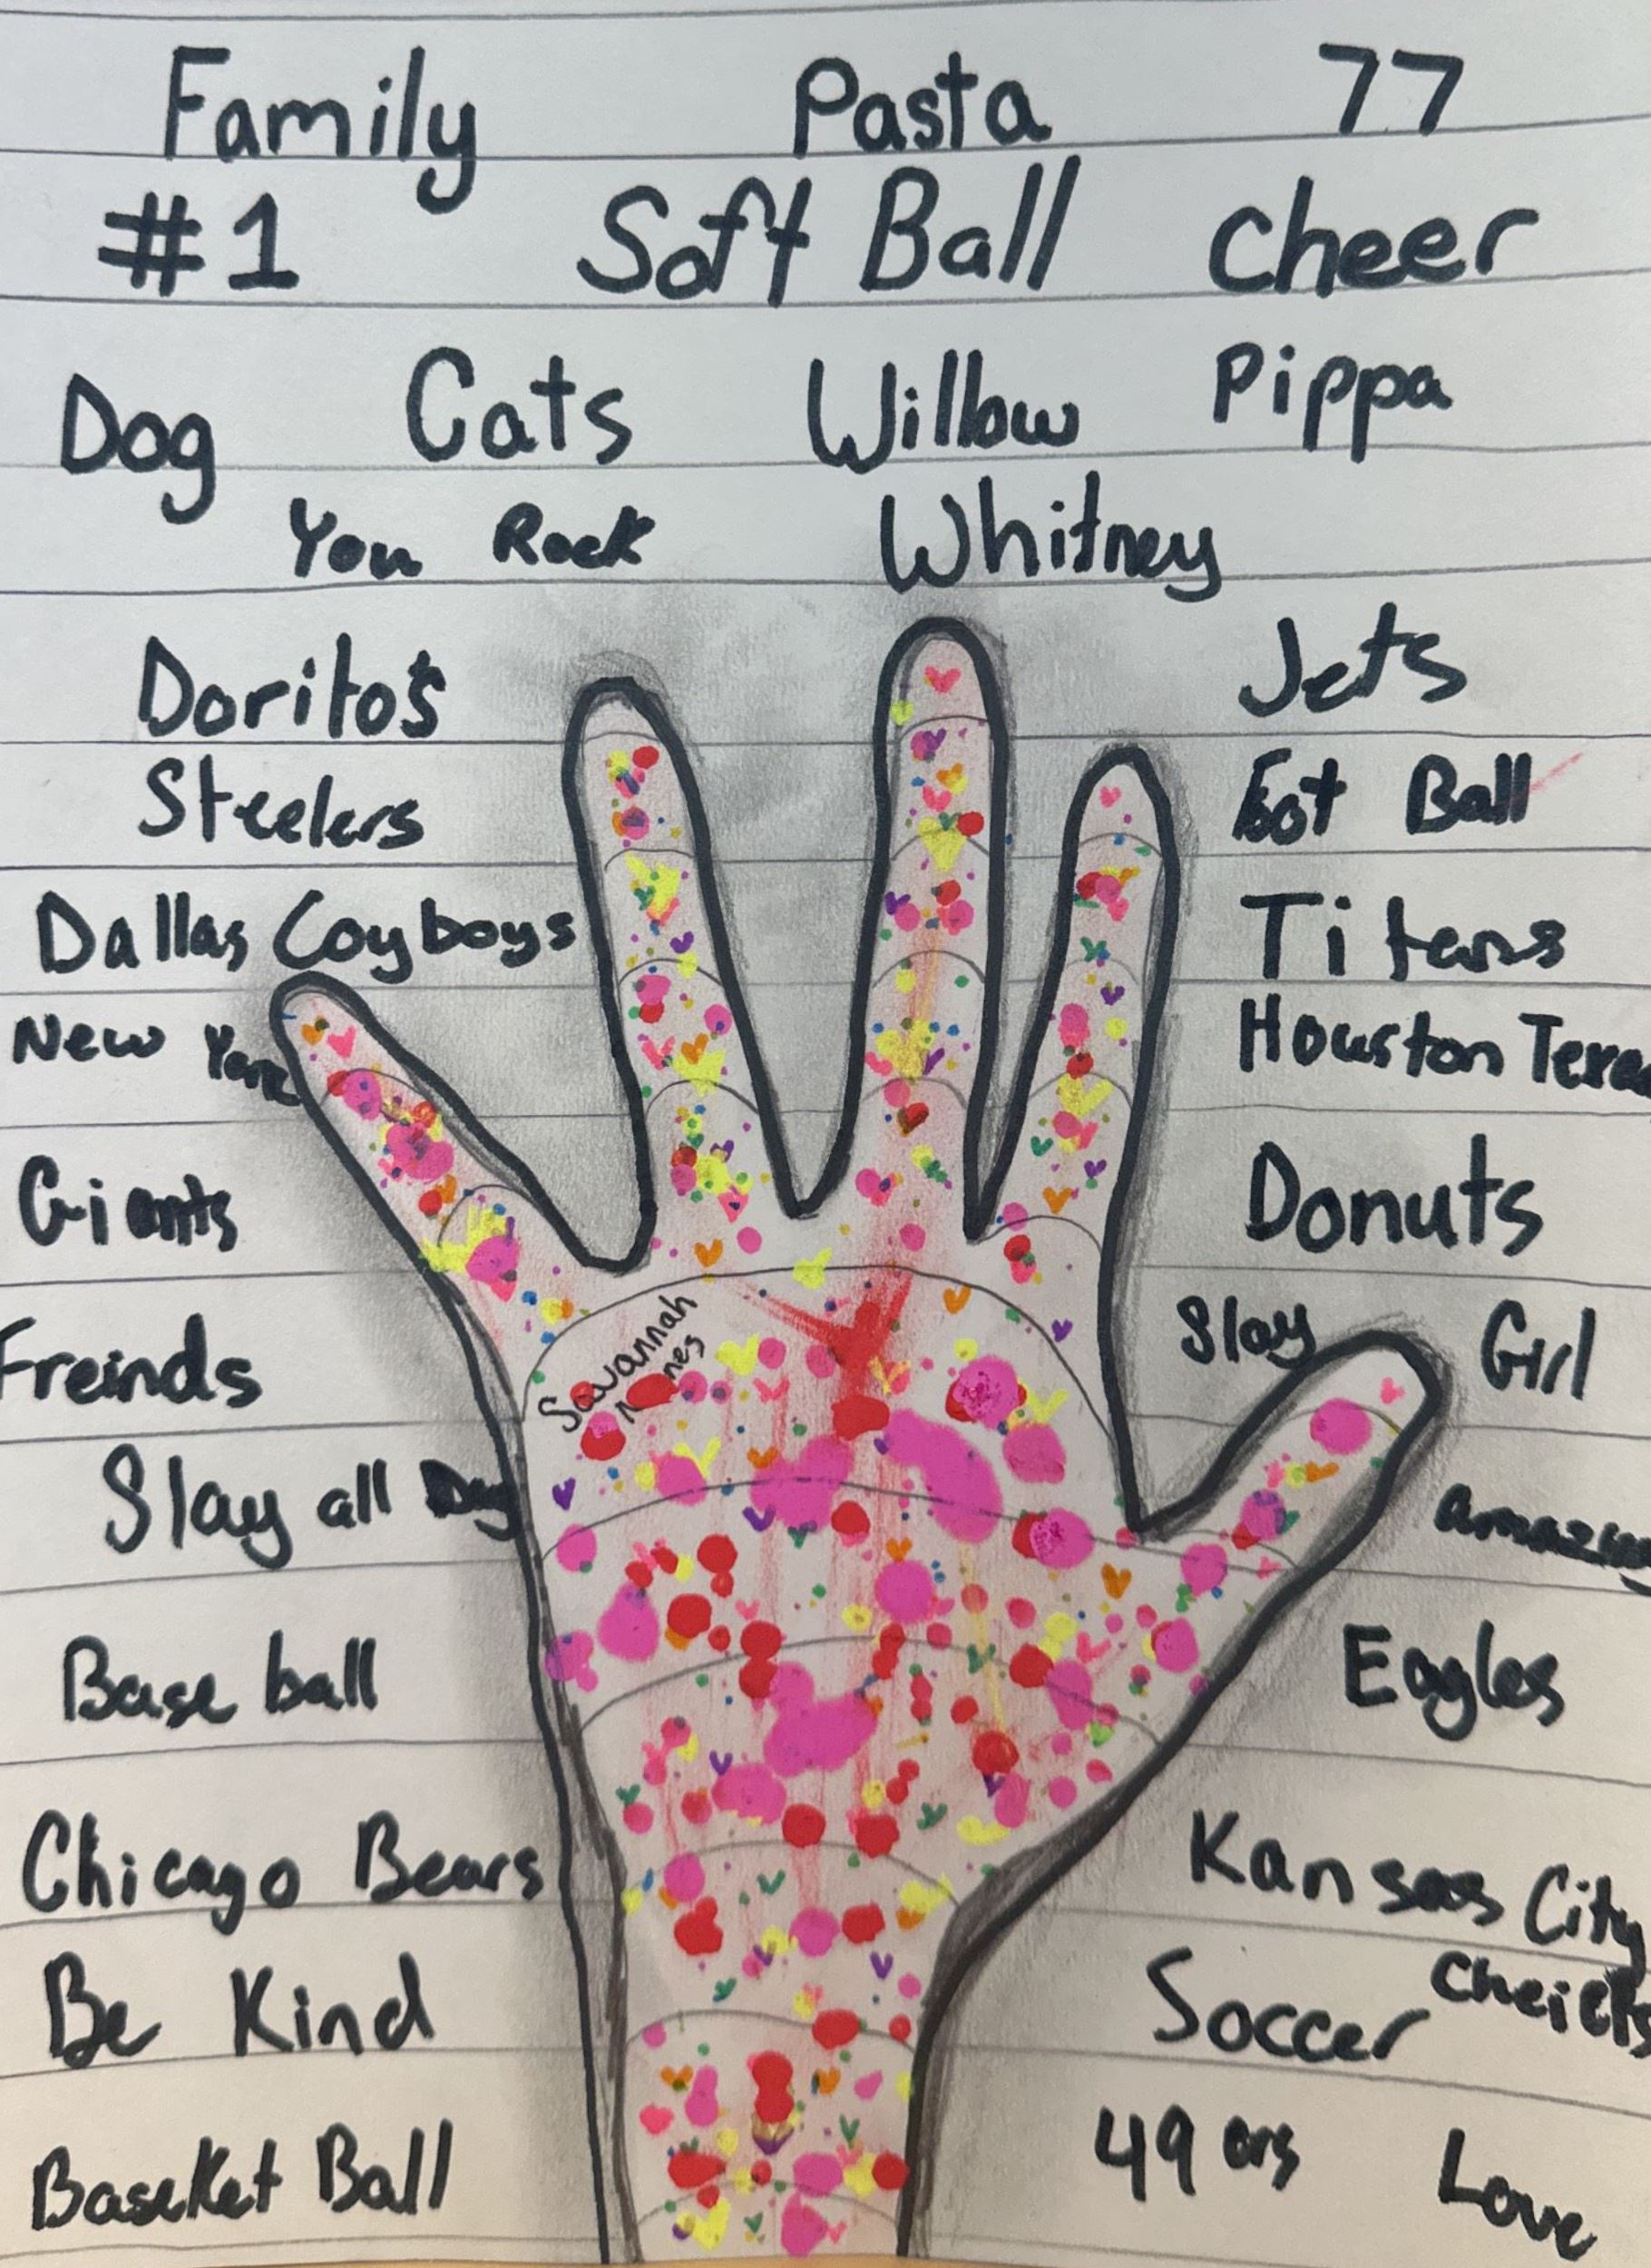 Family Pasta 77
#1 Soft Ball Cheer
Dog Cats Willow Pippa
You Rock Whitney
Dorito's Jets
Steelers Foot Ball
Dallas Coyboys Titens
New York Houston Texa
Giants Donuts
Freinds Slay Girl
Savannah
Slay all Day amazing
Base ball Eagles
Chicago Bears Kansas City
Cheiefs
Be Kind Soccer
Baseket Ball 49 ers Love